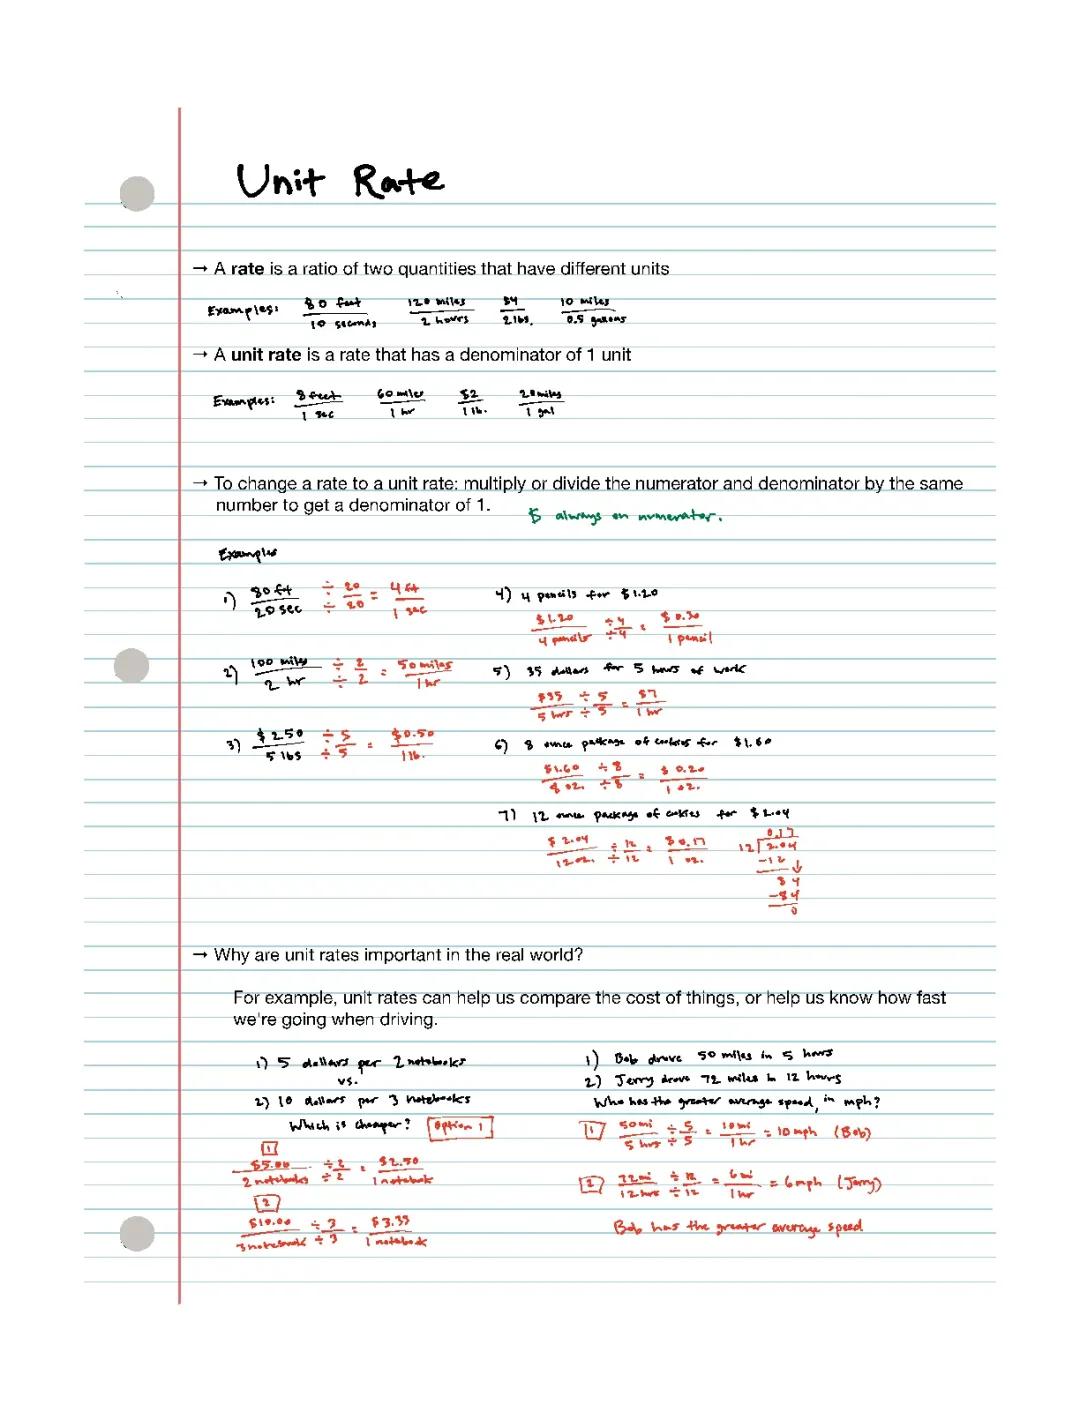 Unit Rate
→ A rate is a ratio of two quantities that have different units
Examples: 80 feet / 10 seconds 120 miles / 2 hours $4 / 2 lbs. 10 miles / 0.5 gallons
→ A unit rate is a rate that has a denominator of 1 unit
Examples: 8 feet / 1 sec 60 miles / 1 hr $2 / 1 lb. 20 miles / 1 gal
→ To change a rate to a unit rate: multiply or divide the numerator and denominator by the same
number to get a denominator of 1.
$ always on numerator.
Examples
1) 80 ft / 20 sec ÷ 20 / ÷ 20 = 4 ft / 1 sec
2) 100 miles / 2 hr ÷ 2 / ÷ 2 = 50 miles / 1 hr
3) $2.50 / 5 lbs ÷ 5 / ÷ 5 = $0.50 / 1 lb.
4) 4 pencils for $1.20
$1.20 / 4 pencils ÷4 / ÷4 = $0.30 / 1 pencil
5) 35 dollars for 5 hours of work
$35 / 5 hrs ÷ 5 / ÷ 5 = $7 / 1 hr
6) 8 ounce package of cookies for $1.60
$1.60 / 8 oz. ÷8 / ÷8 = $0.20 / 1 oz.
7) 12 ounce package of cookies for $2.04
$2.04 / 12 oz. ÷ 12 / ÷ 12 = $0.17 / 1 oz.
0.17
12 2.04
-12
84
-84
0
→ Why are unit rates important in the real world?
For example, unit rates can help us compare the cost of things, or help us know how fast
we're going when driving.
1) 5 dollars per 2 notebooks
vs.
2) 10 dollars per 3 notebooks
Which is cheaper? Option 1
1
$5.00 / 2 notebooks ÷2 / ÷2 = $2.50 / 1 notebook
2
$10.00 / 3 notebook ÷ 3 / ÷ 3 = $3.33 / 1 notebook
1) Bob drove 50 miles in 5 hours
2) Jerry drove 72 miles in 12 hours
Who has the greater average speed, in mph?
1 50 mi / 5 hrs ÷ 5 / ÷ 5 = 10 mi / 1 hr = 10 mph (Bob)
2 72 mi / 12 hrs ÷ 12 / ÷ 12 = 6 mi / 1 hr = 6 mph (Jerry)
Bob has the greater average speed